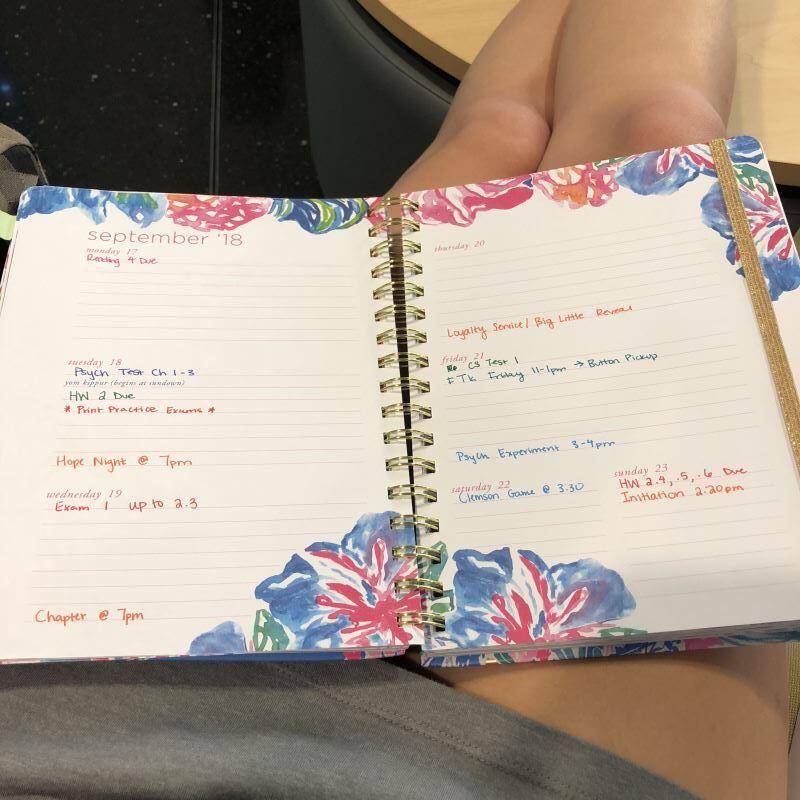 september '18
monday 17
Reading 4 Due
tuesday 18
Psych Test Ch 1-3
yom kippur (begins at sundown)
HW 2 Due
* Print Practice Exams *
Hope Night @ 7pm
wednesday 19
Exam 1 up to 2.3
Chapter @ 7pm
thursday 20
Loyalty Service/ Big Little Reveal
friday 21
CS Test 1
TK Friday 11-1pm → Button Pickup
Psych Experiment 3-4pm
saturday 22
Clemson Game @ 3:30
sunday 23
HW 2.4, .5, .6 Due
Initiation 2:20pm